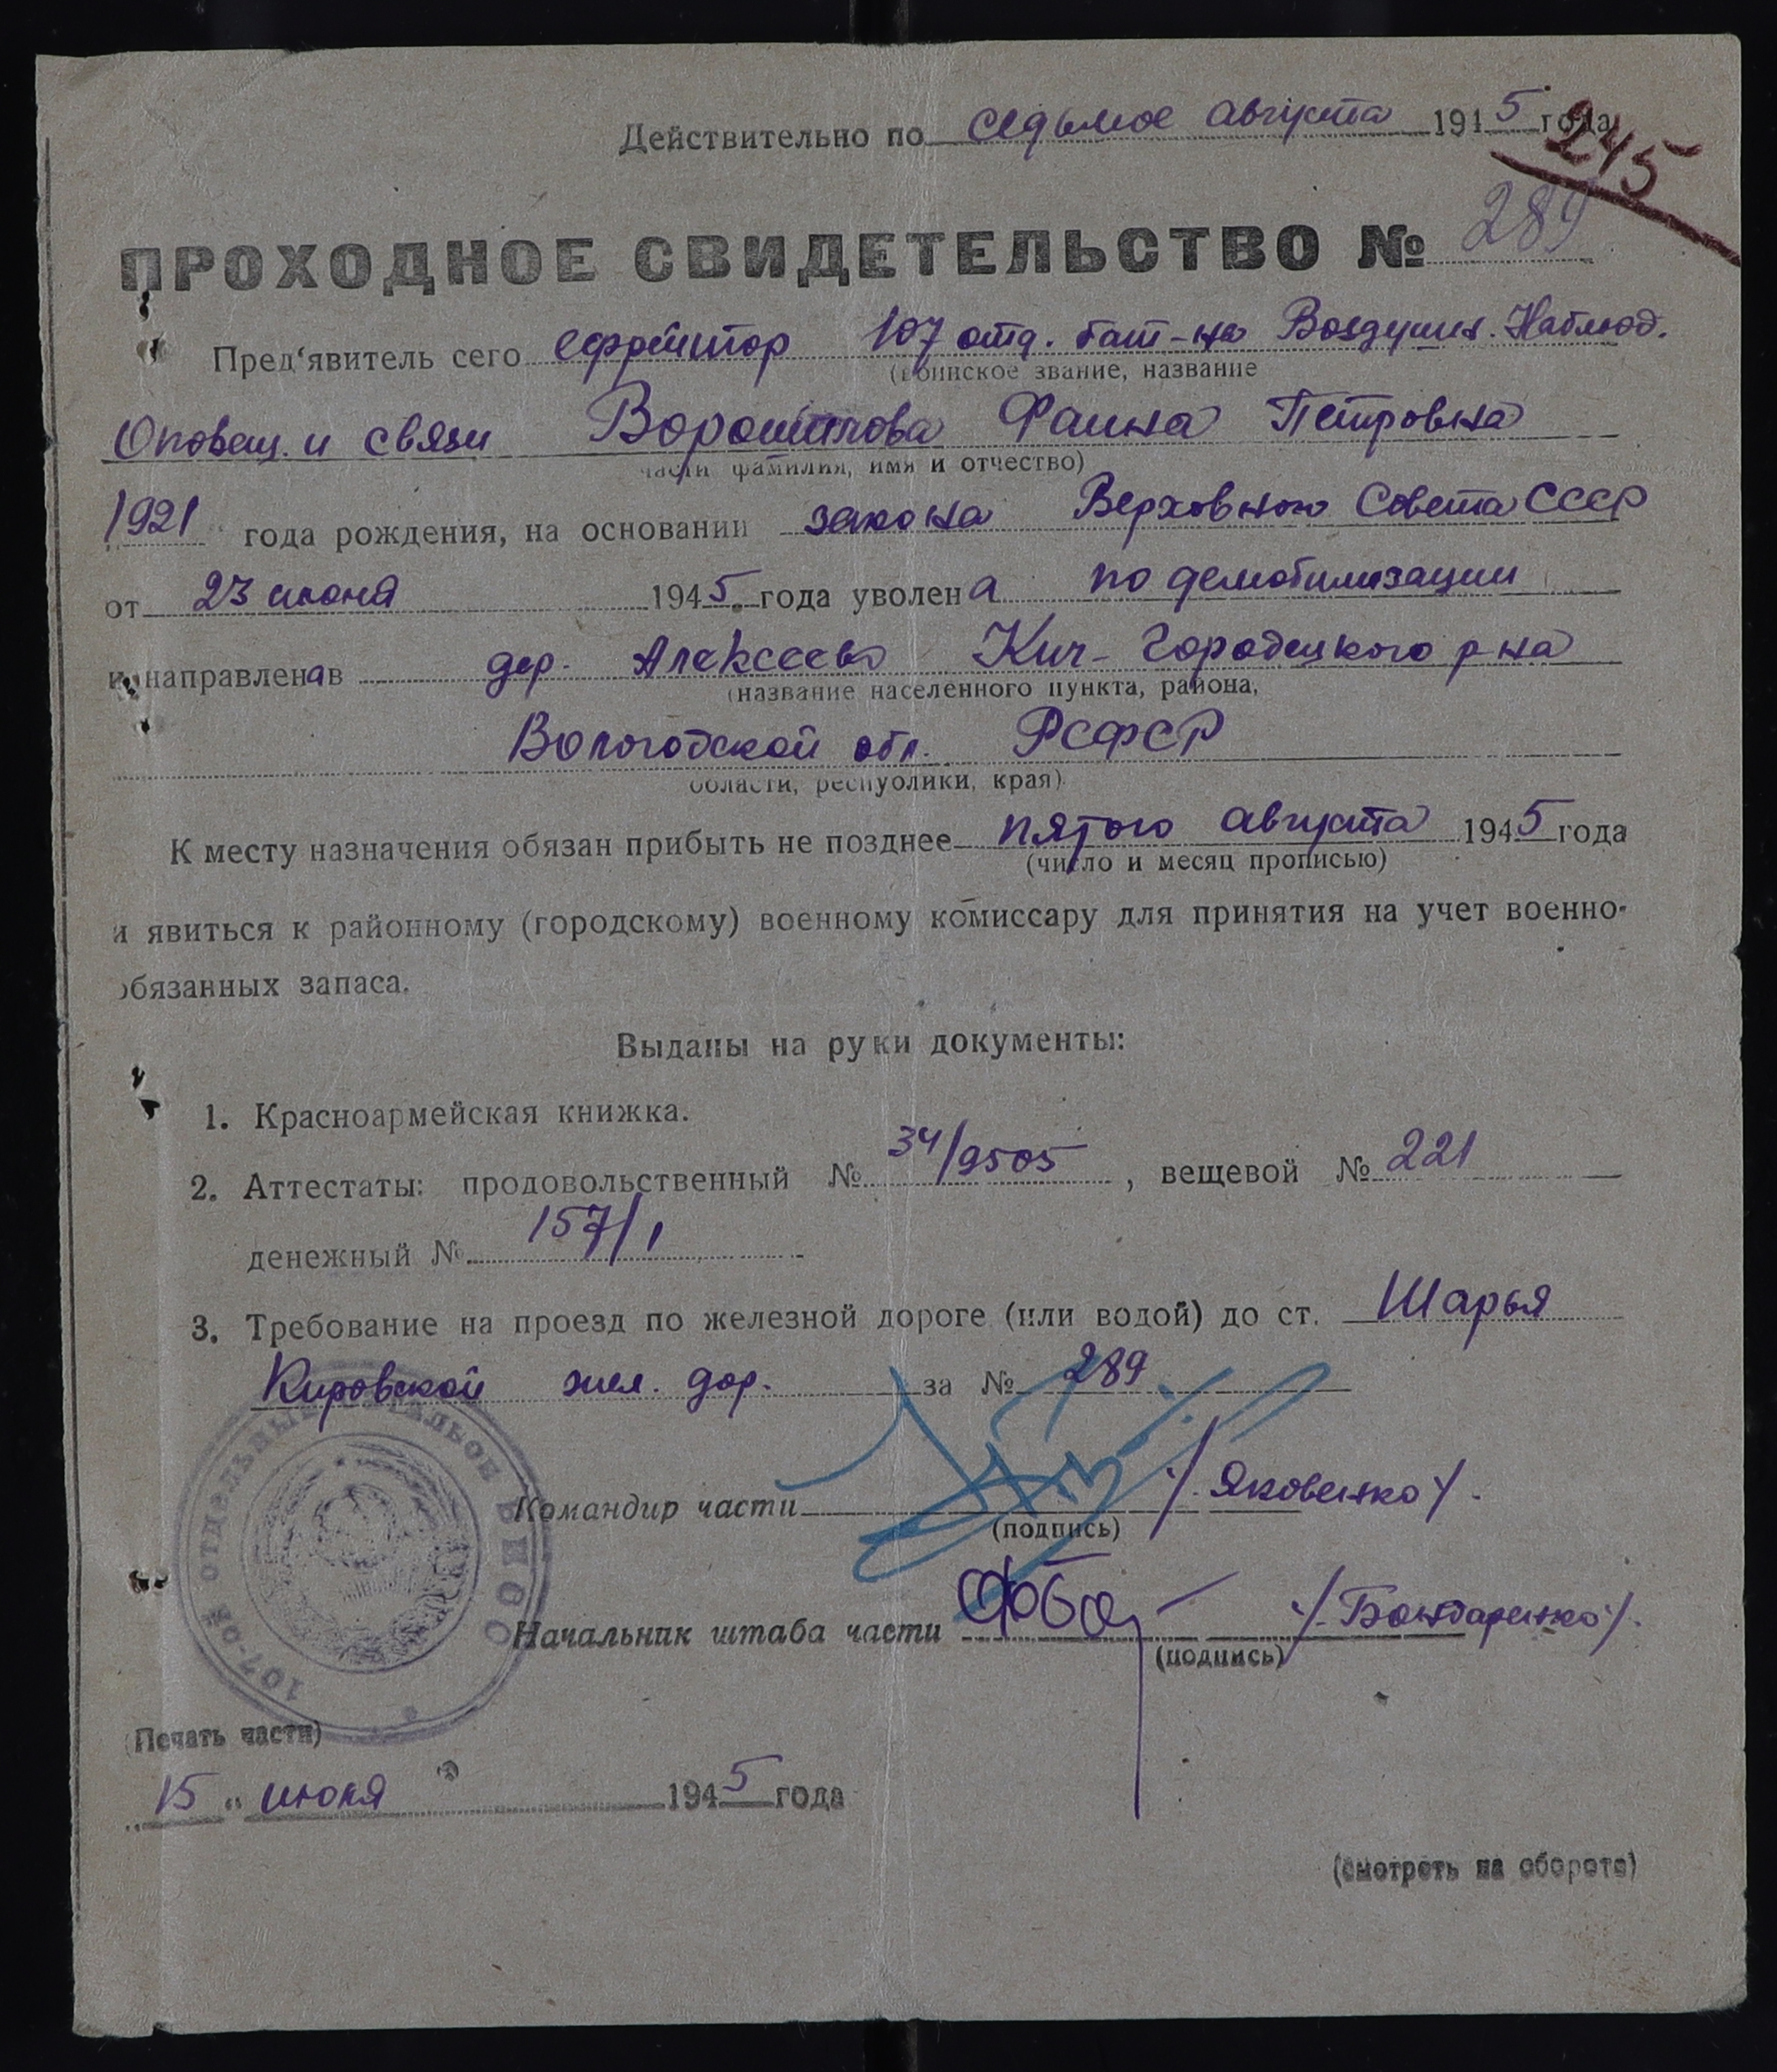 Действительно по седьмое августа 1945 года
245
ПРОХОДНОЕ СВИДЕТЕЛЬСТВО № 289
Пред'явитель сего ефрейтор 107 отд. бат-на Воздушн. Наблюд.
(воинское звание, название
Оповещ. и связи Ворошилова Фаина Петровна
части фамилия, имя и отчество)
1921 года рождения, на основании закона Верховного Совета СССР
от 23 июня 1945 года уволена по демобилизации
и направлена в дер. Алексеево Кич-Городецкого р-на
(название населенного пункта, района,
Вологодской обл. РСФСР
области, республики, края)
К месту назначения обязан прибыть не позднее пятого августа 1945 года
(число и месяц прописью)
и явиться к районному (городскому) военному комиссару для принятия на учет военно-
обязанных запаса.
Выданы на руки документы:
1. Красноармейская книжка.
2. Аттестаты: продовольственный № 34/9505, вещевой № 221
денежный № 157/1
3. Требование на проезд по железной дороге (или водой) до ст. Шарья
Кировской жел. дор. за № 289
107-ОЙ ОТДЕЛЬНЫЙ БАТАЛЬОН ВНОС
Командир части /Яковенко/.
(подпись)
Начальник штаба части /Бондаренко/.
(подпись)
(Печать части)
„15“ июля 1945 года
(смотреть на обороте)